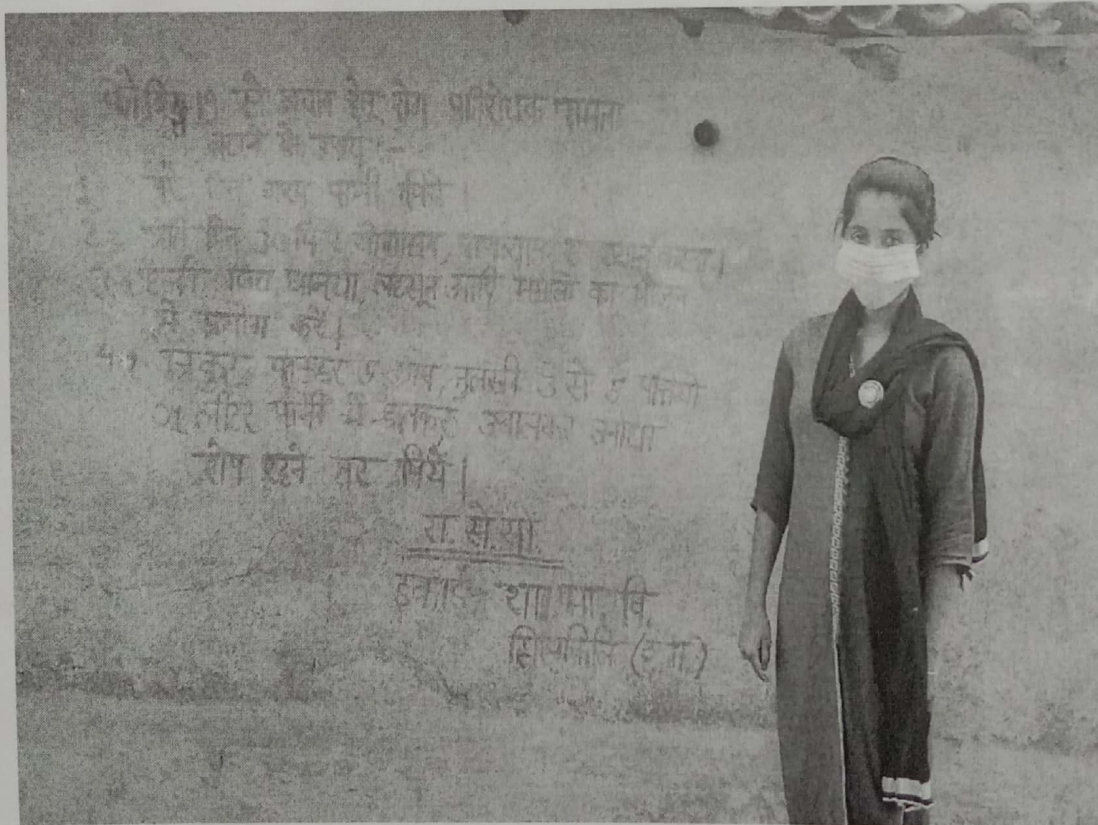 कोविड 19 से बचाव हेतु रोग प्रतिरोधक क्षमता
बढ़ाने के उपाय :-
गरम पानी पियें ।
2. प्रति दिन 30 मिनट योगासन, प्राणायाम व ध्यान करना ।
3. हल्दी, जीरा, धनिया, लहसुन आदि मसालों का भोजन
में प्रयोग करें ।
4. पाउडर 5 ग्राम, तुलसी 3 से 5 पत्तियां
लीटर पानी में डालकर उबालकर आधा
शेष रहने पर पियें ।
रा.से.यो.
इकाई - शा. उ. मा. वि.
(छ.ग.)